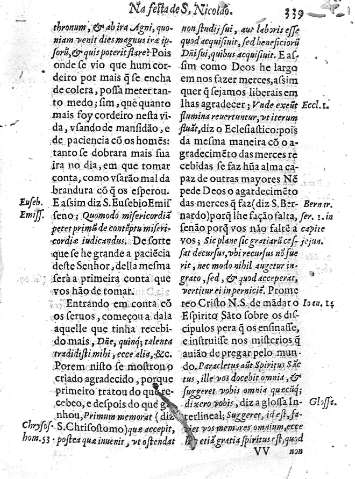 Na festa de S. Nicolao. 339
thronum, & ab ira Agni, quo-
niam venit dies magnus iræ ip-
sorũ, & quis poterit stare? Pois
onde se vio que hum cor-
deiro por mais q̃ se encha
de colera, possa meter tan-
to medo; sim, que quanto
mais foy cordeiro nesta vi-
da, vsando de mansidão, e
de paciencia cõ os homẽs:
tanto se dobrara mais sua
ira no dia, em que tomar
conta, como vsarão mal da
brandura cõ q̃ os esperou.
Euseb. E assim diz S. Eusebio Emis
Emiss. seno; Quomodo misericordiã
petet primũ de contẽptu miseri-
cordiæ iudicandus. De sorte
que se he grande a paciẽcia
deste Senhor, della mesma
será a primeira conta que
vos hão de tomar.
Entrando em conta cõ
os seruos, começou a dala
aquelle que tinha recebi-
do mais, Dñe, quinq; talenta
tradidisti mihi, ecce alia, &c.
Porem nisto se mostrou o
criado agradecido, porque
primeiro tratou do que re-
cebeo, e despois do que ga-
nhou, Primum memorat (diz
Chrysos- S. Chrisostomo) quæ accepit,
hom. 53. postea quæ inuenit, vt ostendat
non studij sui, aut laboris esse
quod acquisiuit, sed beneficiorũ
Dñi sui, quibus acquisiuit. E as-
sim como Deos he largo
em nos fazer merces, assim
quer q̃ sejamos liberais em
lhas agradecer; Vnde exeũt Eccl. 1.
flumina reuertuntur, vt iterum
fluãt, diz o Eclesiastico: pois
da mesma maneira cõ o a-
gradecimẽto das merces re
cebidas se faz hũa alma ca-
paz de outras mayores Nõ
pede Deos o agardecimẽto
das merces q̃ faz (diz S. Ber- Bernar.
nardo) porq̃ lhe façāo falta, ser. 1. in
senão porq̃ vos não falte a capite
vos; Sic plane sic gratiarũ ces- jejun.
sat decursus, vbi recursus nõ fue
rit, nec modo nihil augetur in-
grato, sed, & quod acceperat,
vertitur ei in perniciẽ. Prome
teo Cristo N. S. de mãdar o Ioan. 14
Espirito Sãto sobre os dis-
cipulos pera q̃ os ensinasse,
e instruisse nos misterios q̃
auião de pregar pelo mun-
do. Paracletus aũt Spiritus Sãc
tus, ille vos docebit omnia, &
suggeret vobis omnia quecũq;
dixero vobis, diz a glossa In Glossa.
terlineal; Suggeret, id est, fa-
ciet vos memores omnium, ecce
etiã gratia spiritus est, quod
VV non